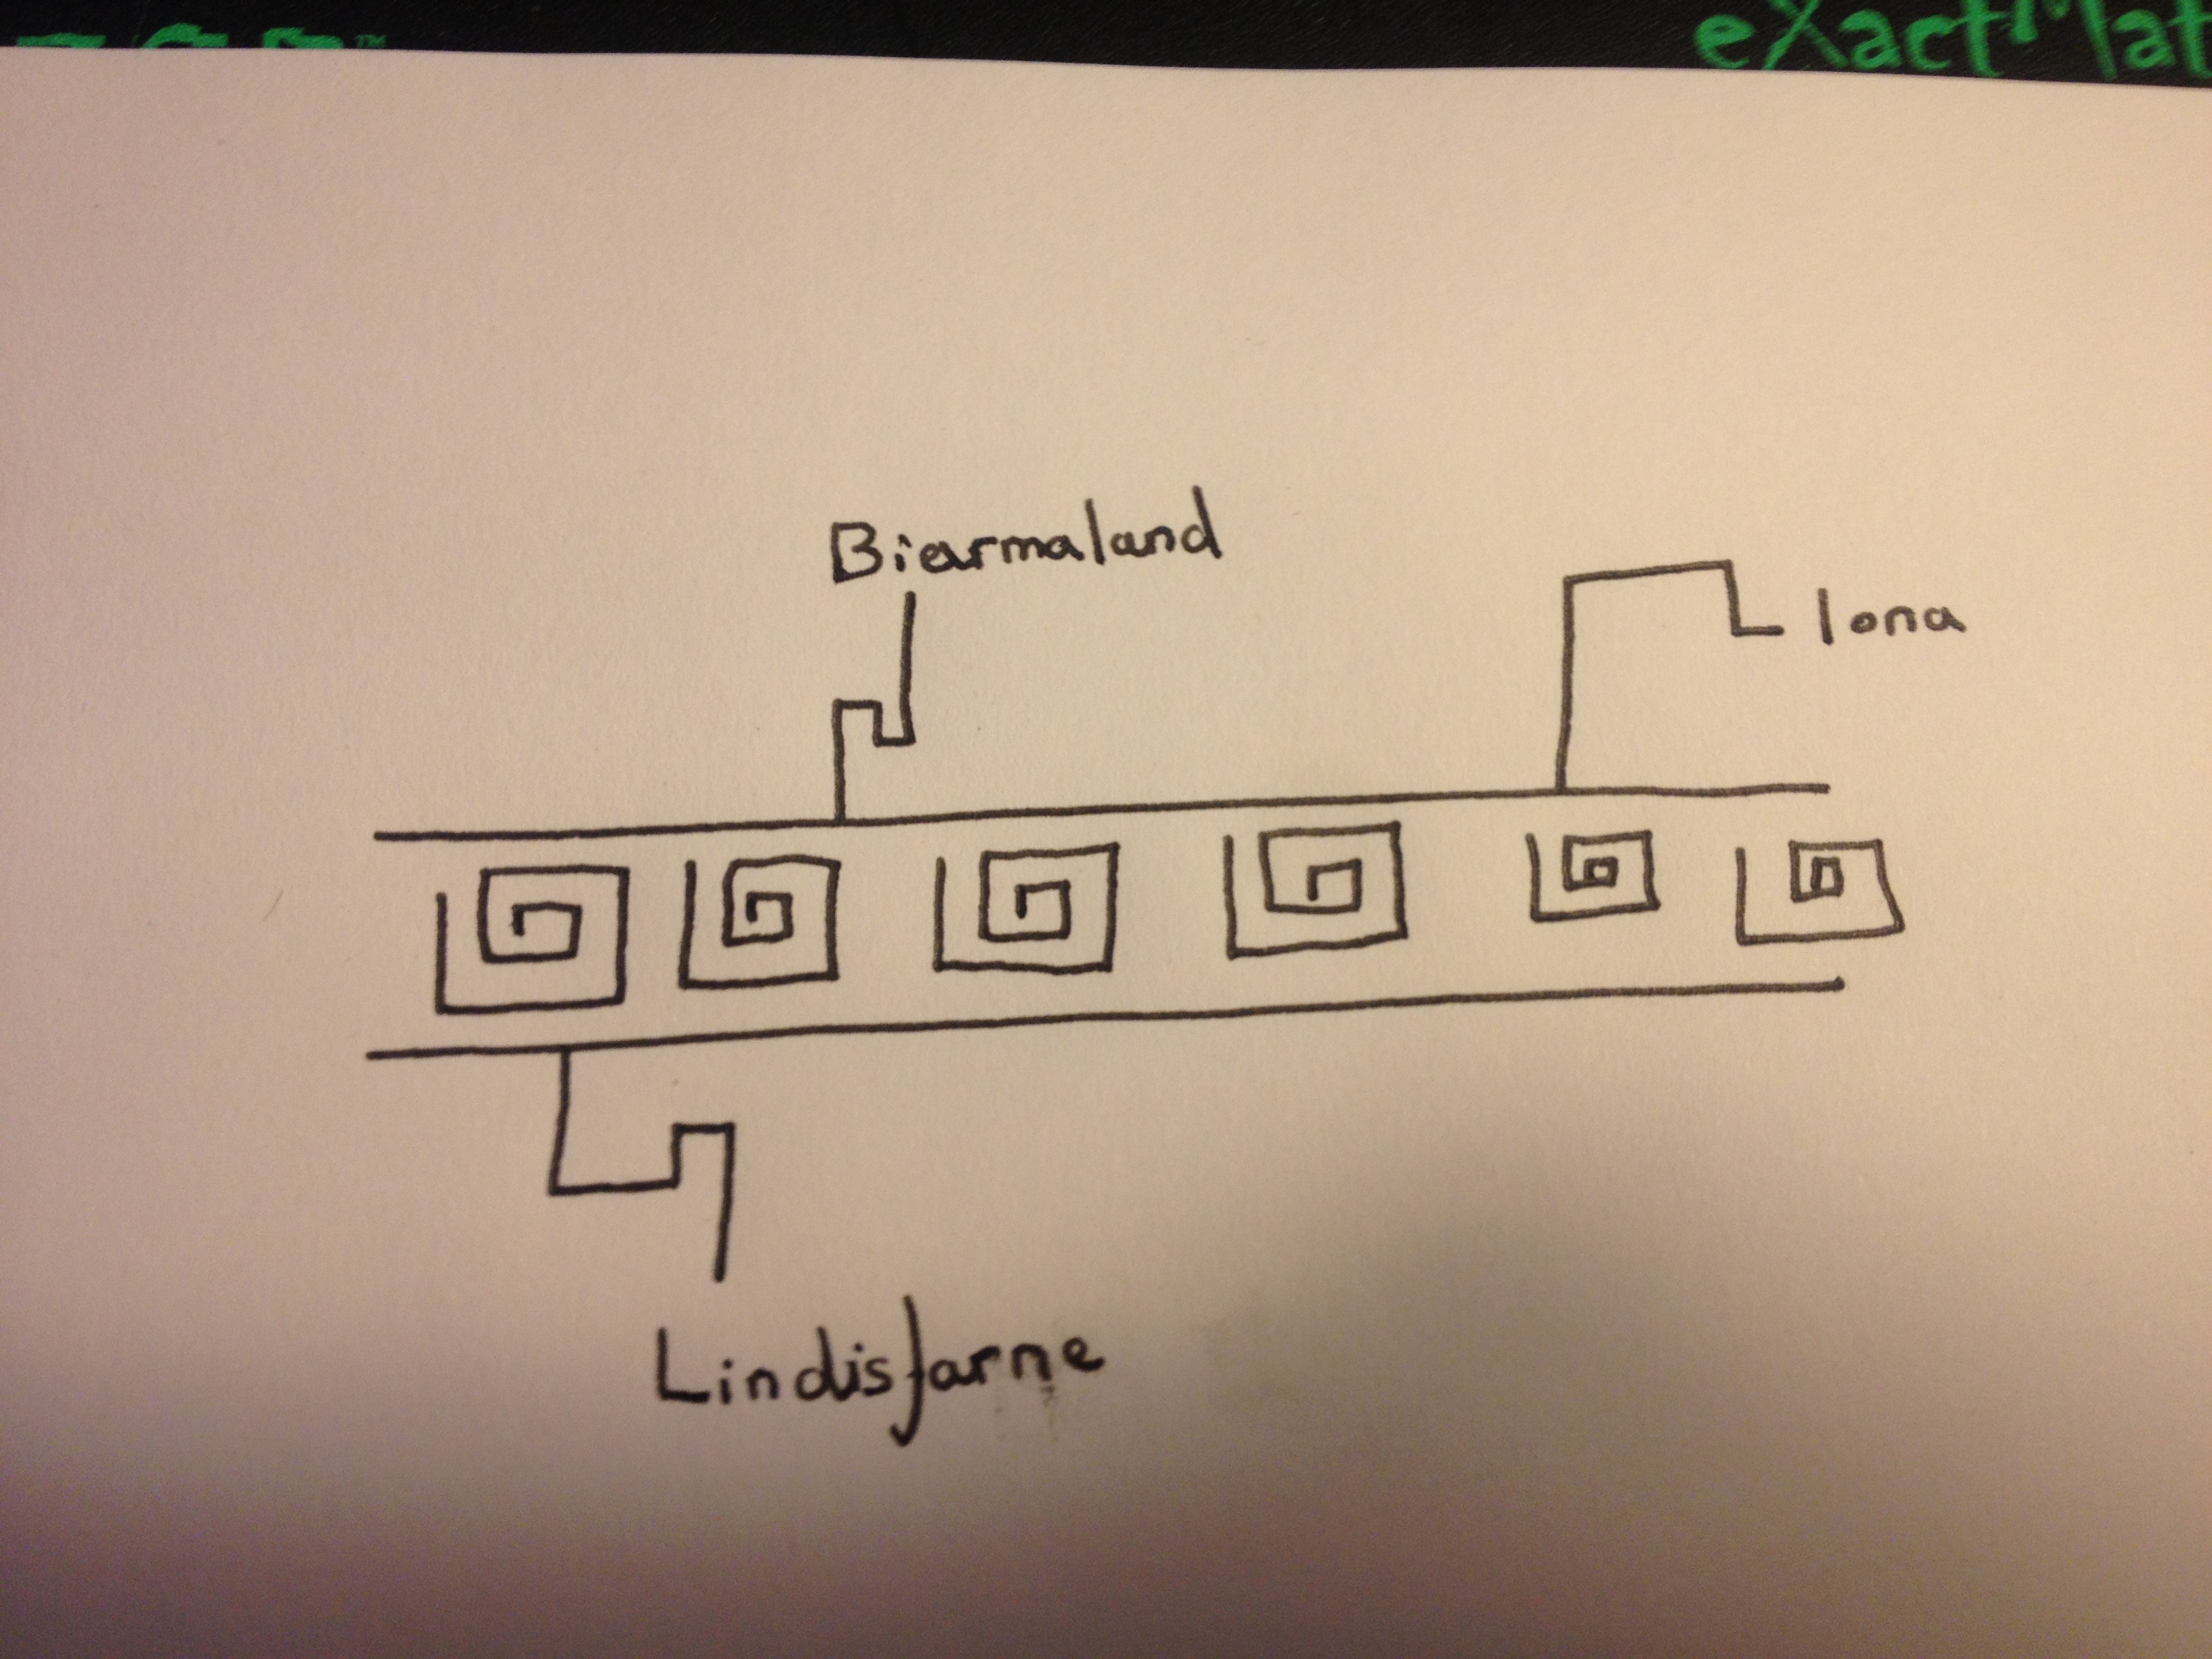 eXactMat
Biarmaland
Iona
Lindisfarne